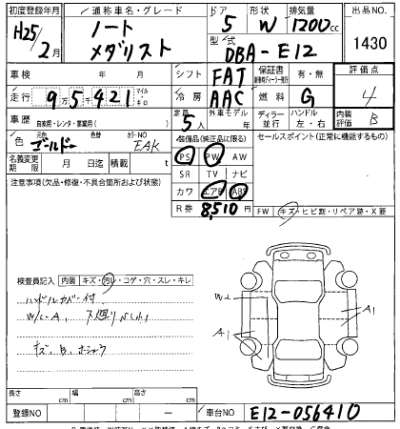 初度登録年月 通称車名・グレード ドア 形状 排気量 出品NO.
H25/2月 ノート メダリスト 5 W 1200cc 1430
型式 DBA-E12
車検 年 月 シフト FAT 保証書 有・無 評価点
走行 9万5千421 冷房 AAC 燃料 G 4
車歴 自家用・レンタ・事業用( ) 定員 5人 外車モデル ディーラー 並行 ハンドル 左・右 内装評価 B
色 元色 ゴールド カラーNO EAK 装備品(純正品に限る) セールスポイント(正常に機能するもの)
名義変更期限 月 日迄 積載 t PS PW AW
SR TV ナビ
注意事項(欠品・修復・不具合箇所および状態) カワ エアB ABS
R券 8510円
FW キズ・ヒビ割・リペア跡・X要
検査員記入 内装 キズ・汚レ・コゲ・穴・スレ・キレ
ハンドルカバー付
W/C-A, 下廻り
キズ, B,
W2
A1
A1
長さ cm 幅 cm 高さ cm
登録NO ー 車台NO E12-056410